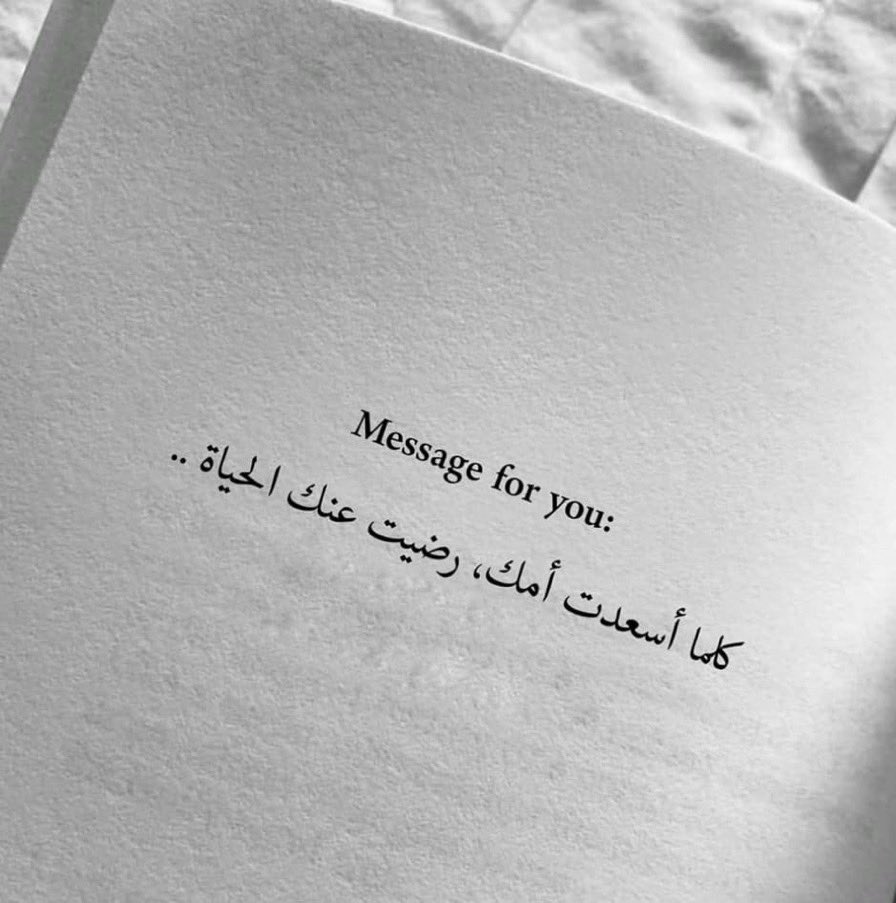 Message for you:
كلما أسعدت أمك، رضيت عنك الحياة ..